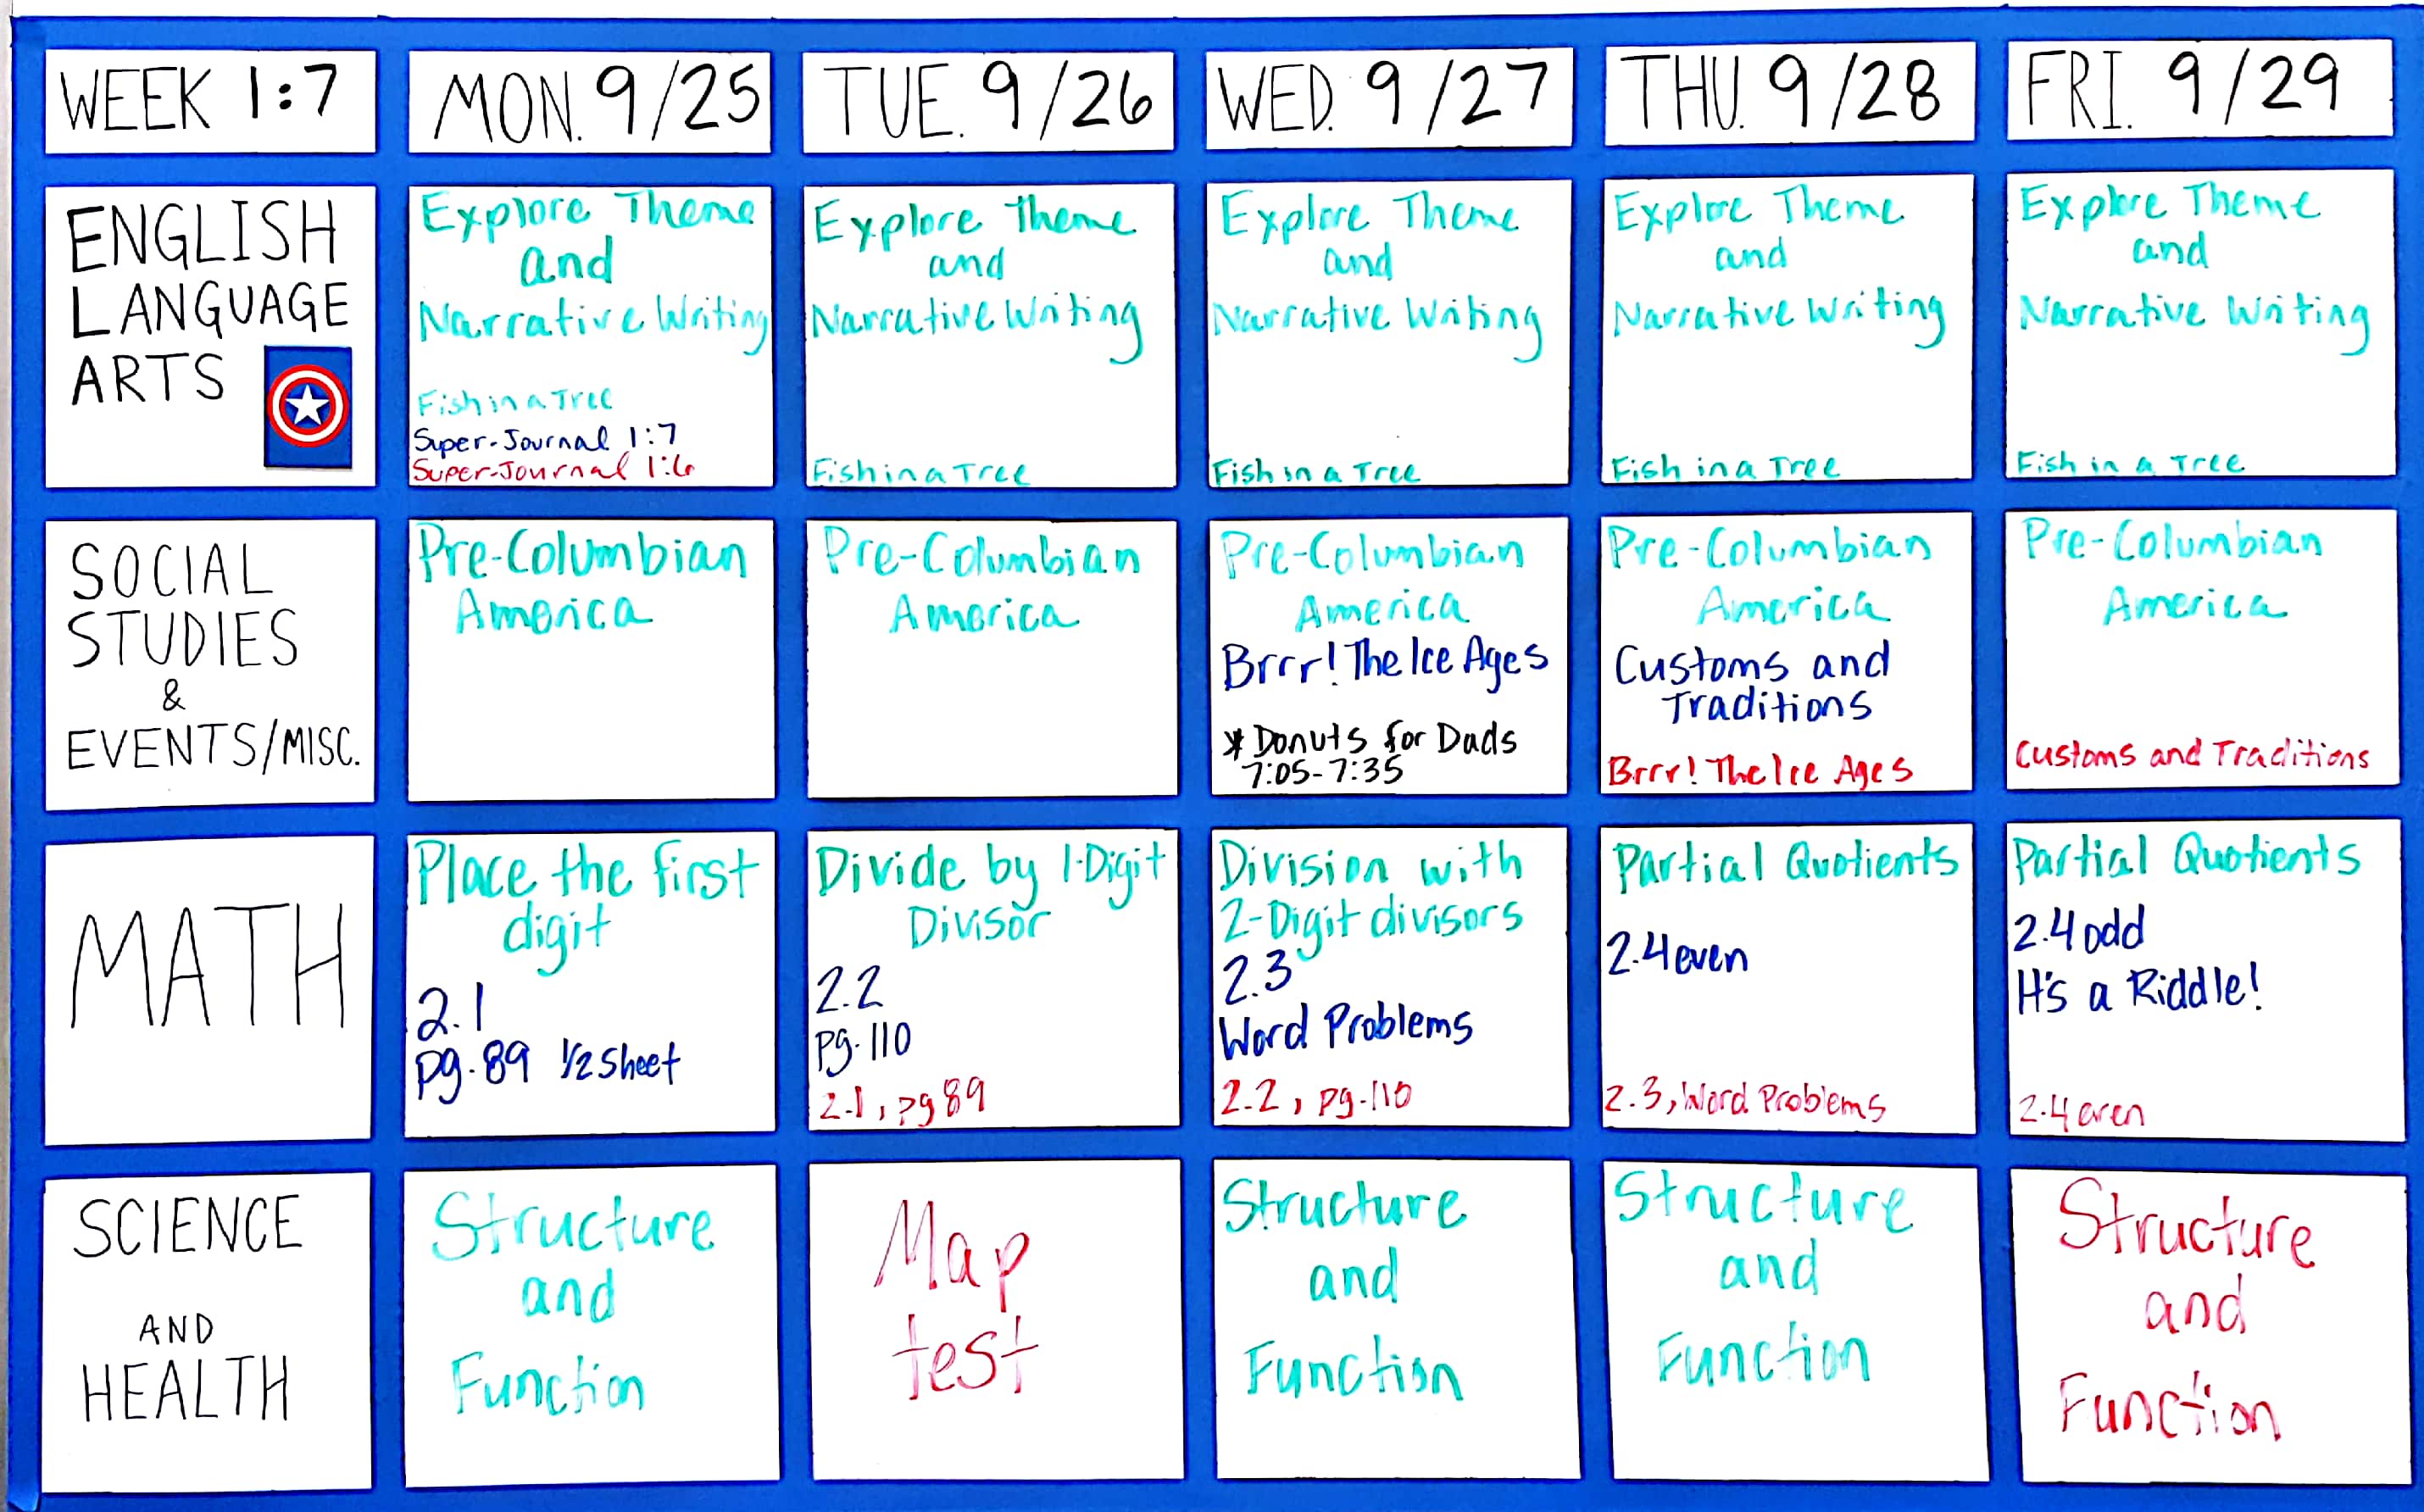 WEEK 1:7
MON. 9/25
TUE. 9/26
WED. 9/27
THU. 9/28
FRI. 9/29
ENGLISH
LANGUAGE
ARTS
Explore Theme
and
Narrative Writing
Fish in a Tree
Super-Journal 1:7
Super-Journal 1:6
Explore Theme
and
Narrative Writing
Fish in a Tree
Explore Theme
and
Narrative Writing
Fish in a Tree
Explore Theme
and
Narrative Writing
Fish in a Tree
Explore Theme
and
Narrative Writing
Fish in a Tree
SOCIAL
STUDIES
&
EVENTS/MISC.
Pre-Columbian
America
Pre-Columbian
America
Pre-Columbian
America
Brrr! The Ice Ages
* Donuts for Dads
7:05-7:35
Pre-Columbian
America
Customs and
Traditions
Brrr! The Ice Ages
Pre-Columbian
America
Customs and Traditions
MATH
Place the first
digit
2.1
pg. 89 1/2 sheet
Divide by 1-Digit
Divisor
2.2
pg. 110
2.1, pg 89
Division with
2-Digit divisors
2.3
Word Problems
2.2, pg. 110
Partial Quotients
2.4 even
2.3, Word Problems
Partial Quotients
2.4 odd
It's a Riddle!
2.4 even
SCIENCE
AND
HEALTH
Structure
and
Function
Map
test
Structure
and
Function
Structure
and
Function
Structure
and
Function